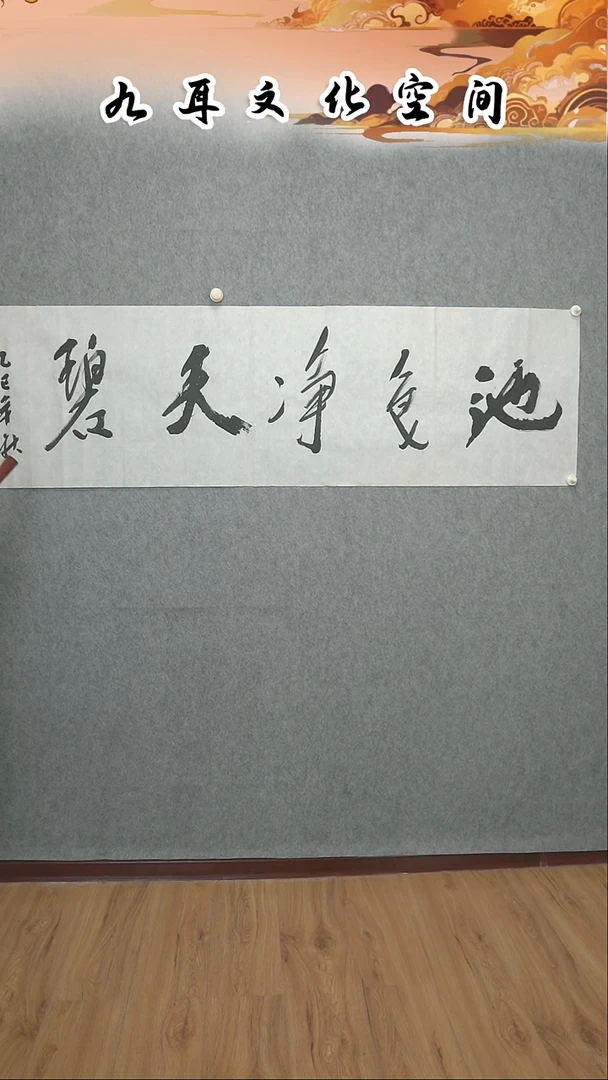 九耳文化空间
池色净天碧
乙巳年秋